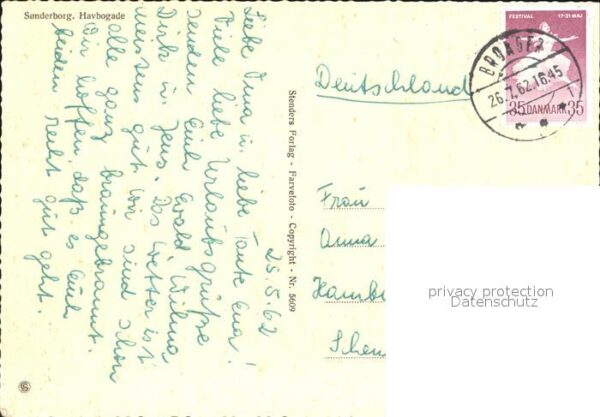 Sønderborg. Havbogade
25.5.62
Liebe Oma u. liebe Tante Ena!
Viele liebe Urlaubsgrüße
senden Euch Ewald Wilma
Dirk u. Jens. Das Wetter ist
meistens gut wir sind schon
alle ganz braungebrannt.
Wir hoffen, daß es Euch
beiden recht gut geht.
Stenders Forlag - Farvefoto - Copyright - Nr. 5609
Deutschland
FESTIVAL 17-31 MAJ
BROAGER
26.7.62.16.45
35 DANMARK 35
Frau
Anna
Hambu
privacy protection
Datenschutz